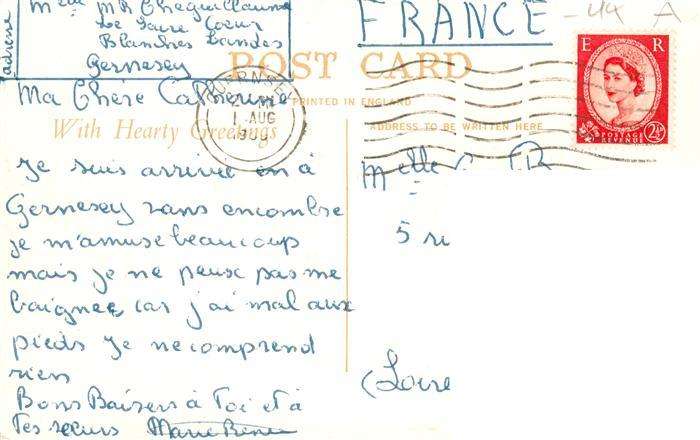 adresse
Melle MR Cheguillaume
Le Sacré Coeur
Blanches Landes
Gernesey
FRANCE
- 4x A
POST CARD
E R
POSTAGE
REVENUE
2½D
GUERNSEY
1 AUG
PRINTED IN ENGLAND
ADDRESS TO BE WRITTEN HERE
With Hearty Greetings
Ma Chère Catherine
Je suis arrivée en à
Gernesey sans encombre
je m'amuse beaucoup
mais je ne peux pas me
baignee car j'ai mal aux
pieds je ne comprend
rien
Bons Baisers à Toi et à
tes sœurs Marie Renée
Melle C
5 ru
(Loire